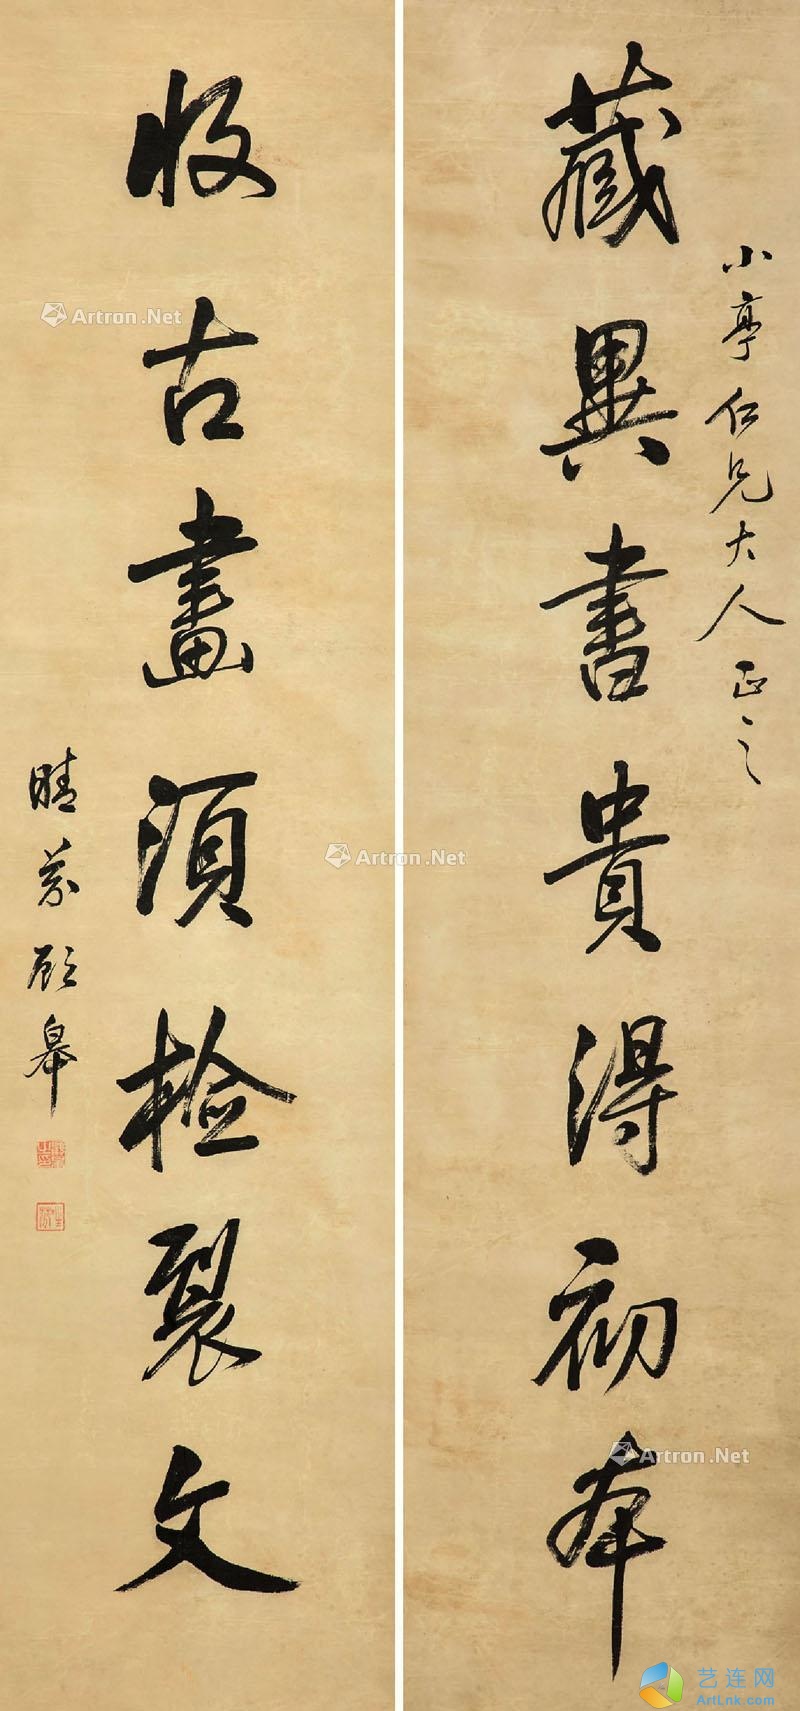 小亭仁兄大人正之
藏異書貴得初本
收古畫須檢裂文
晴芬顧皋
Artron.Net
Artron.Net
Artron.Net
艺连网
ArtLnk.com